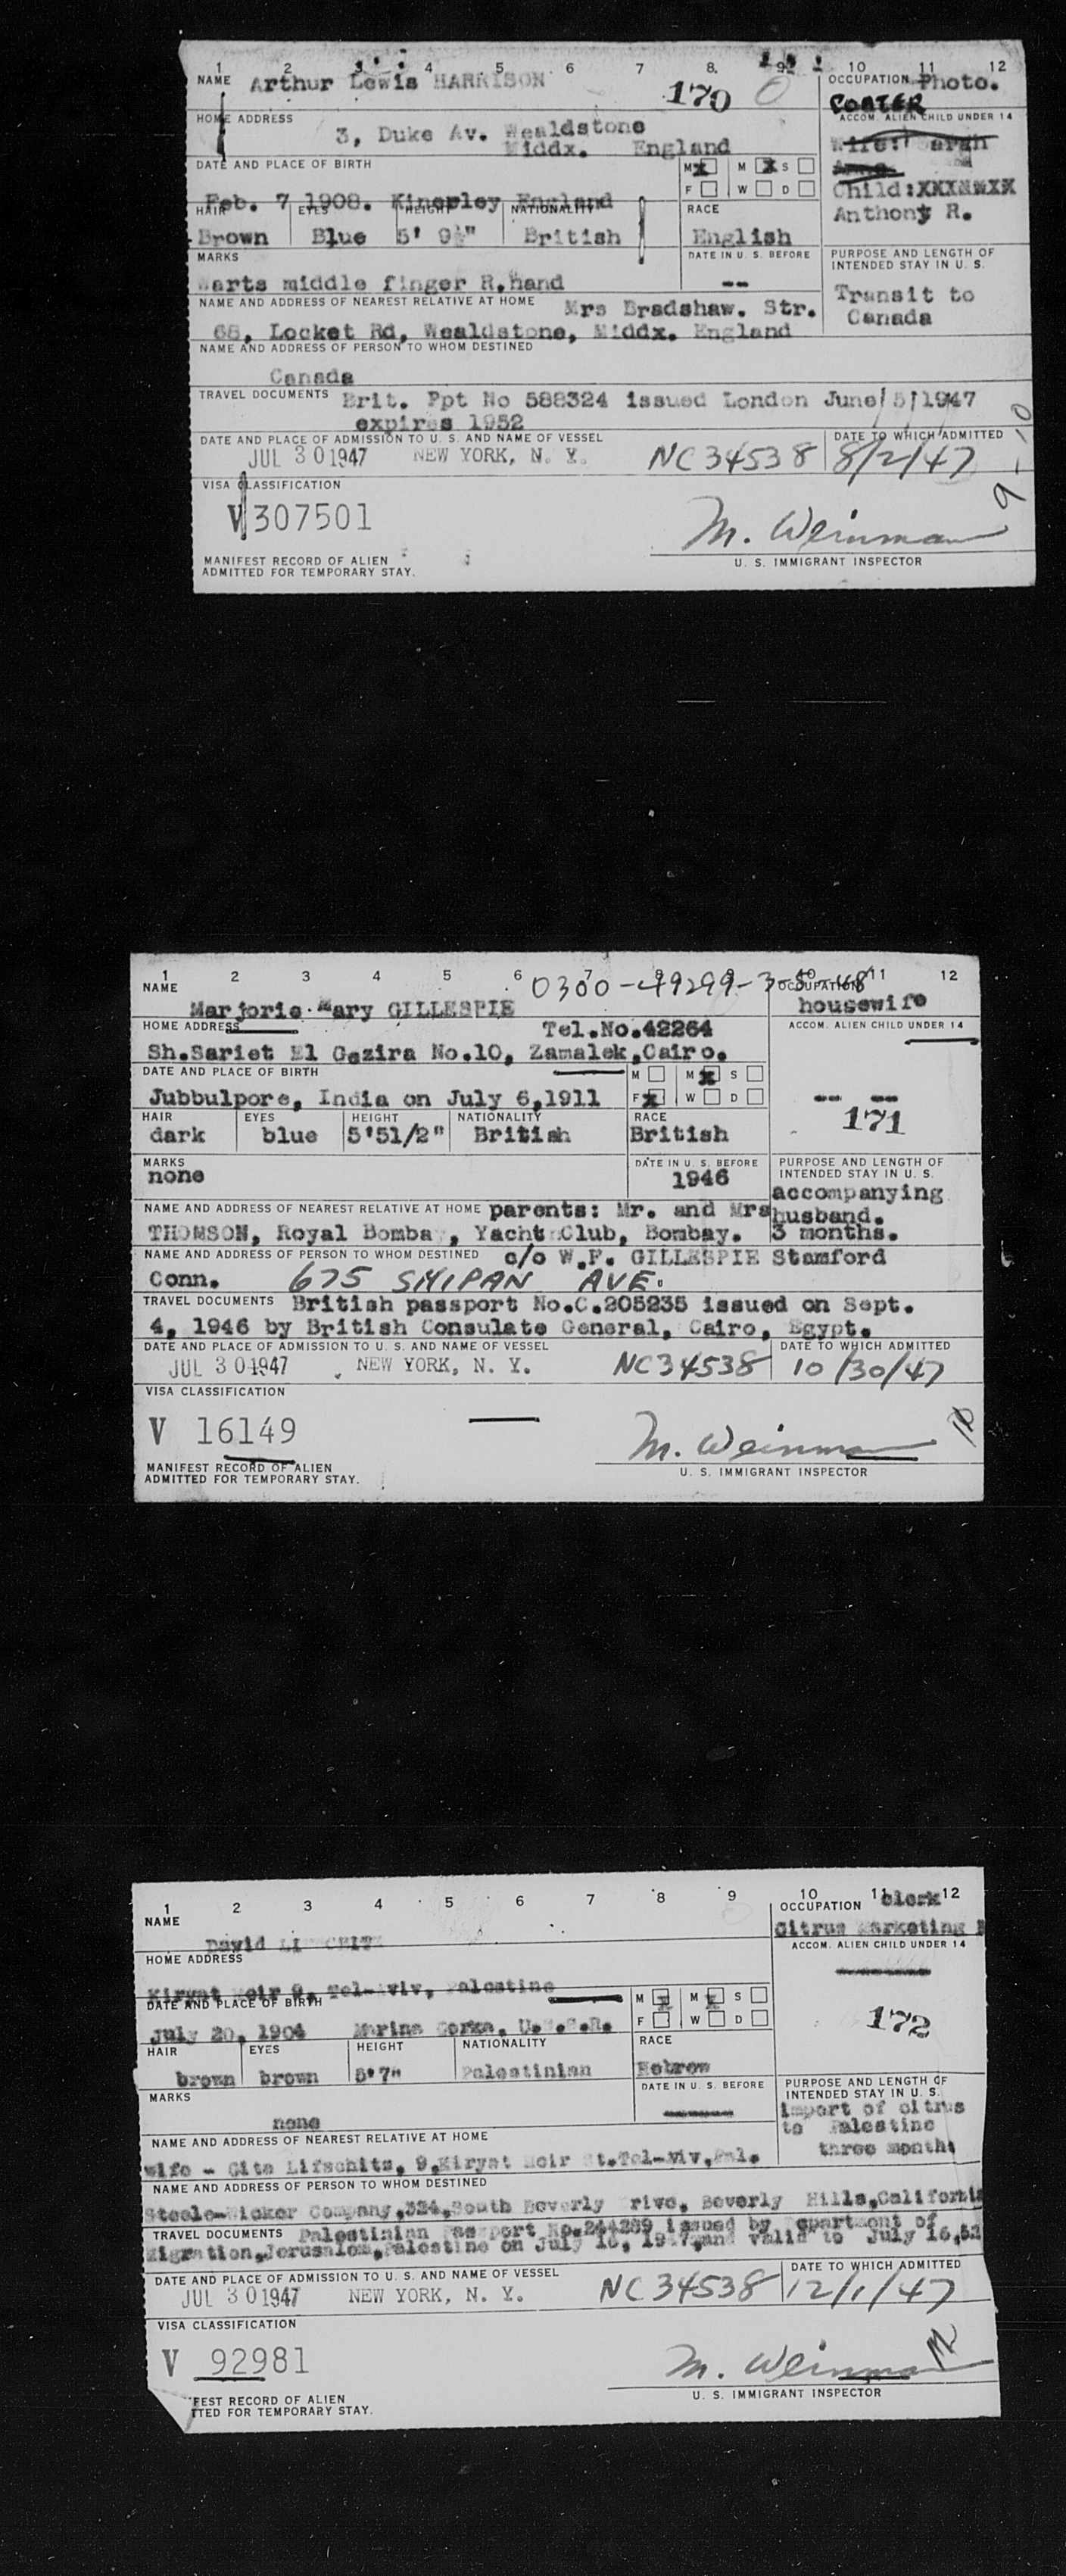 1 2 3 4 5 6 7 8. 9 10 11 12
NAME Arthur Lewis HARRISON 170 0 OCCUPATION Photo.
COATER
HOME ADDRESS ACCOM. ALIEN CHILD UNDER 14
3, Duke Av. Wealdstone Wife: Sarah
Middx. England
DATE AND PLACE OF BIRTH M X M X S
F W D Child:XXXXXXX
Feb. 7 1908. England
HAIR EYES HEIGHT NATIONALITY RACE Anthony R.
Brown Blue 5' 9½" British English
MARKS DATE IN U. S. BEFORE PURPOSE AND LENGTH OF
INTENDED STAY IN U. S.
Warts middle finger R.hand -- Transit to
NAME AND ADDRESS OF NEAREST RELATIVE AT HOME Mrs Bradshaw. Str. Canada
68, Locket Rd, Wealdstone, Middx. England
NAME AND ADDRESS OF PERSON TO WHOM DESTINED
Canada
TRAVEL DOCUMENTS Brit. Ppt No 588324 issued London June/5/1947
expires 1952
DATE AND PLACE OF ADMISSION TO U. S. AND NAME OF VESSEL DATE TO WHICH ADMITTED
JUL 30 1947 NEW YORK, N. Y. NC 34538 8/2/47
VISA CLASSIFICATION 9-10
V 307501 M. Weinman
MANIFEST RECORD OF ALIEN
ADMITTED FOR TEMPORARY STAY. U. S. IMMIGRANT INSPECTOR
1 2 3 4 5 6 7 8 9 10 11 12
NAME 0300-49299-3 OCCUPATION
Marjorie Mary GILLESPIE housewife
HOME ADDRESS Tel.No.42264 ACCOM. ALIEN CHILD UNDER 14
Sh.Sariet El Gezira No.10, Zamalek,Cairo.
DATE AND PLACE OF BIRTH M M X S
Jubbulpore, India on July 6,1911 F X W D -- --
HAIR EYES HEIGHT NATIONALITY RACE 171
dark blue 5'51/2" British British
MARKS DATE IN U. S. BEFORE PURPOSE AND LENGTH OF
INTENDED STAY IN U. S.
none 1946 accompanying
NAME AND ADDRESS OF NEAREST RELATIVE AT HOME parents: Mr. and Mrs husband.
THOMSON, Royal Bombay, Yacht Club, Bombay. 3 months.
NAME AND ADDRESS OF PERSON TO WHOM DESTINED c/o W.F. GILLESPIE Stamford
Conn. 675 SHIPAN AVE.
TRAVEL DOCUMENTS British passport No.C.205235 issued on Sept.
4, 1946 by British Consulate General, Cairo, Egypt.
DATE AND PLACE OF ADMISSION TO U. S. AND NAME OF VESSEL DATE TO WHICH ADMITTED
JUL 30 1947 NEW YORK, N. Y. NC 34538 10/30/47
VISA CLASSIFICATION
V 16149 M. Weinman 10
MANIFEST RECORD OF ALIEN
ADMITTED FOR TEMPORARY STAY. U. S. IMMIGRANT INSPECTOR
1 2 3 4 5 6 7 8 9 10 11 12
NAME OCCUPATION clerk
David Citrus Marketing B
HOME ADDRESS ACCOM. ALIEN CHILD UNDER 14
Kiryat Meir 9, Tel-Aviv, Palestine
DATE AND PLACE OF BIRTH M X M X S
July 20, 1904 Marina Gorka, U.S.S.R. F W D 172
HAIR EYES HEIGHT NATIONALITY RACE
brown brown 5'7" Palestinian Hebrew
MARKS DATE IN U. S. BEFORE PURPOSE AND LENGTH OF
INTENDED STAY IN U. S.
none import of citrus
to Palestine
NAME AND ADDRESS OF NEAREST RELATIVE AT HOME three months
wife - Gita Lifschits, 9,Kiryat Meir St.Tel-Aviv,Pal.
NAME AND ADDRESS OF PERSON TO WHOM DESTINED
Steele-Wicker Company,324,South Beverly Drive, Beverly Hills,California
TRAVEL DOCUMENTS Palestinian Passport No.244289 issued by Department of
Migration,Jerusalem,Palestine on July 16, 1947,and valid to July 16,52
DATE AND PLACE OF ADMISSION TO U. S. AND NAME OF VESSEL DATE TO WHICH ADMITTED
JUL 30 1947 NEW YORK, N. Y. NC 34538 12/1/47
VISA CLASSIFICATION
V 92981 M. Weinman 12
FEST RECORD OF ALIEN
TTED FOR TEMPORARY STAY. U. S. IMMIGRANT INSPECTOR